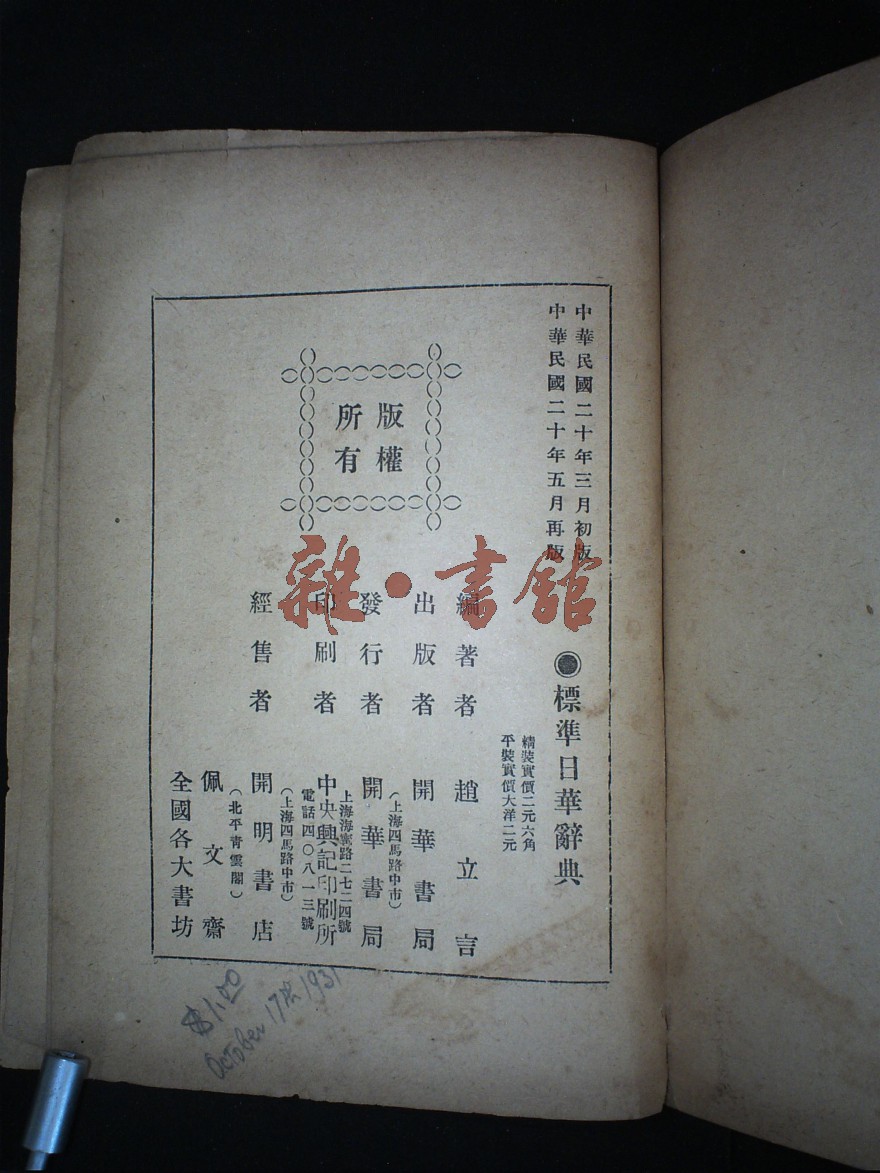 中華民國二十年三月初版
中華民國二十年五月再版
標準日華辭典
精裝實價二元六角
平裝實價大洋二元
版權
所有
編著者 趙立言
出版者 開華書局
(上海四馬路中市)
發行者 開華書局
上海海寗路二七二四號
印刷者 中央興記印刷所
電話四〇八一三號
(上海四馬路中市)
經售者 開明書店
(北平青雲閣)
佩文齋
全國各大書坊
雜·書館
$1.00
October 17th 1931